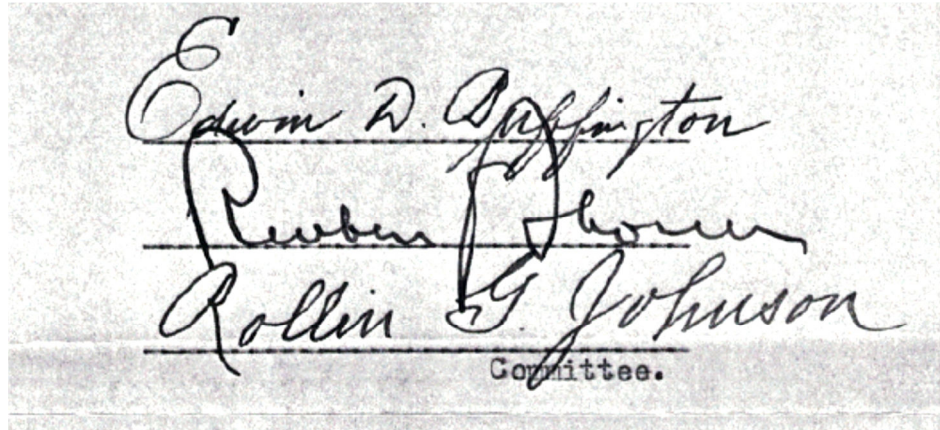 Edwin D. Buffington
Reuben Thoren
Rollin G. Johnson
Committee.